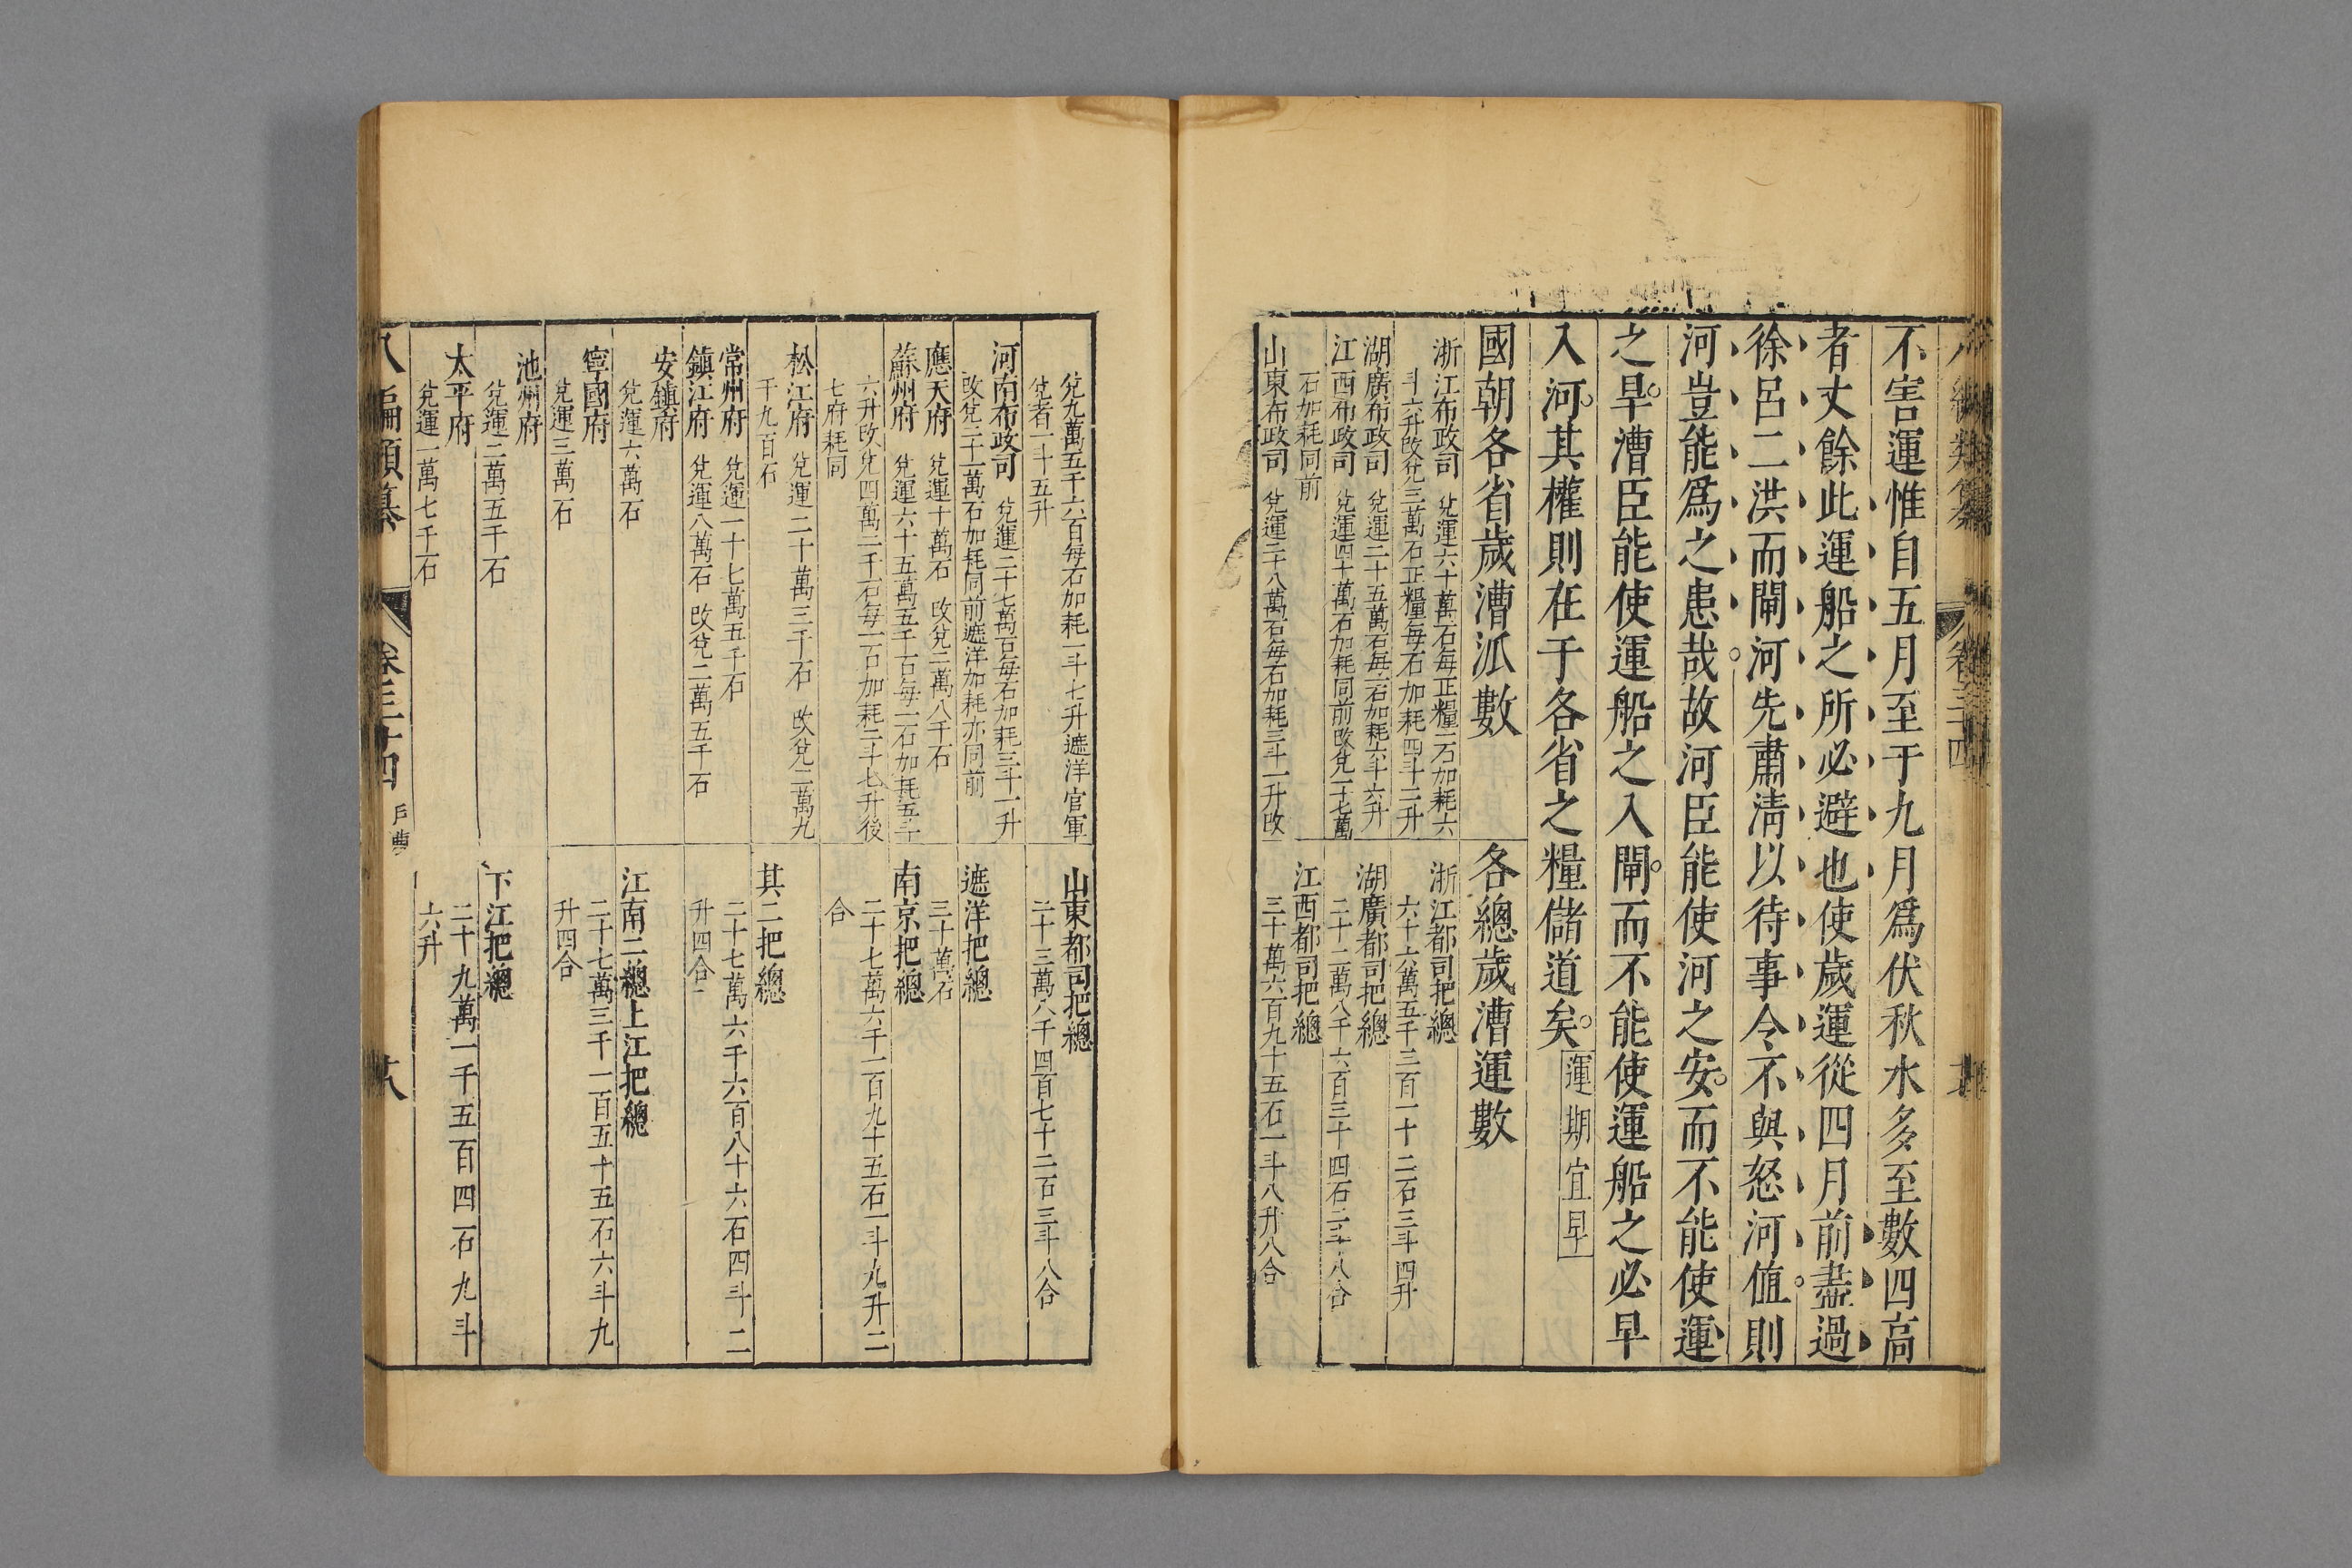 不害運惟自五月至于九月爲伏秋水多至數四高
者丈餘此運船之所必避也使歲運從四月前盡過
徐呂二洪而閘河先肅清以待事令不與怒河值則
河豈能爲之患哉故河臣能使河之安而不能使運
之早漕臣能使運船之入閘而不能使運船之必早
入河其權則在于各省之糧儲道矣 運期宜早
國朝各省歲漕派數
浙江布政司 兌運六十萬石每正糧一石加耗六
斗六升改兌三萬石正糧每石加耗四斗二升
湖廣布政司 兌運二十五萬石每石加耗六斗六升
江西布政司 兌運四十萬石加耗同前改兌一十七萬
石加耗同前
山東布政司 兌運二十八萬石每石加耗三斗一升改
各總歲漕運數
浙江都司把總
六十六萬五千三百一十二石三斗四升
湖廣都司把總
二十二萬八千六百三十四石二斗八合
江西都司把總
三十萬六百九十五石一斗八升八合
兌九萬五千六百每石加耗一斗七升遮洋官軍
兌者一斗五升
河南布政司 兌運二十七萬石每石加耗三斗一升
改兌二十一萬石加耗同前遮洋加耗亦同前
應天府 兌運十萬石 改兌二萬八千石
蘇州府 兌運六十五萬五千石每一石加耗五斗
六升改兌四萬二千石每一石加耗二斗七升後
七府耗同
松江府 兌運二十萬三千石 改兌二萬九
千九百石
常州府 兌運一十七萬五千石
鎮江府 兌運八萬石 改兌二萬五千石
安鎮府
兌運六萬石
寧國府
兌運三萬石
池州府
兌運二萬五千石
太平府
兌運一萬七千石
山東都司把總
二十三萬八千四百七十二石三斗八合
遮洋把總
三十萬石
南京把總
二十七萬六千一百九十五石一斗九升二
合
其二把總
二十七萬六千六百八十六石四斗二
升四合
江南二總上江把總
二十七萬三千一百五十五石六斗九
升四合
下江把總
二十九萬一千五百四石九斗
六升
八編類纂 卷三十四 戶曹